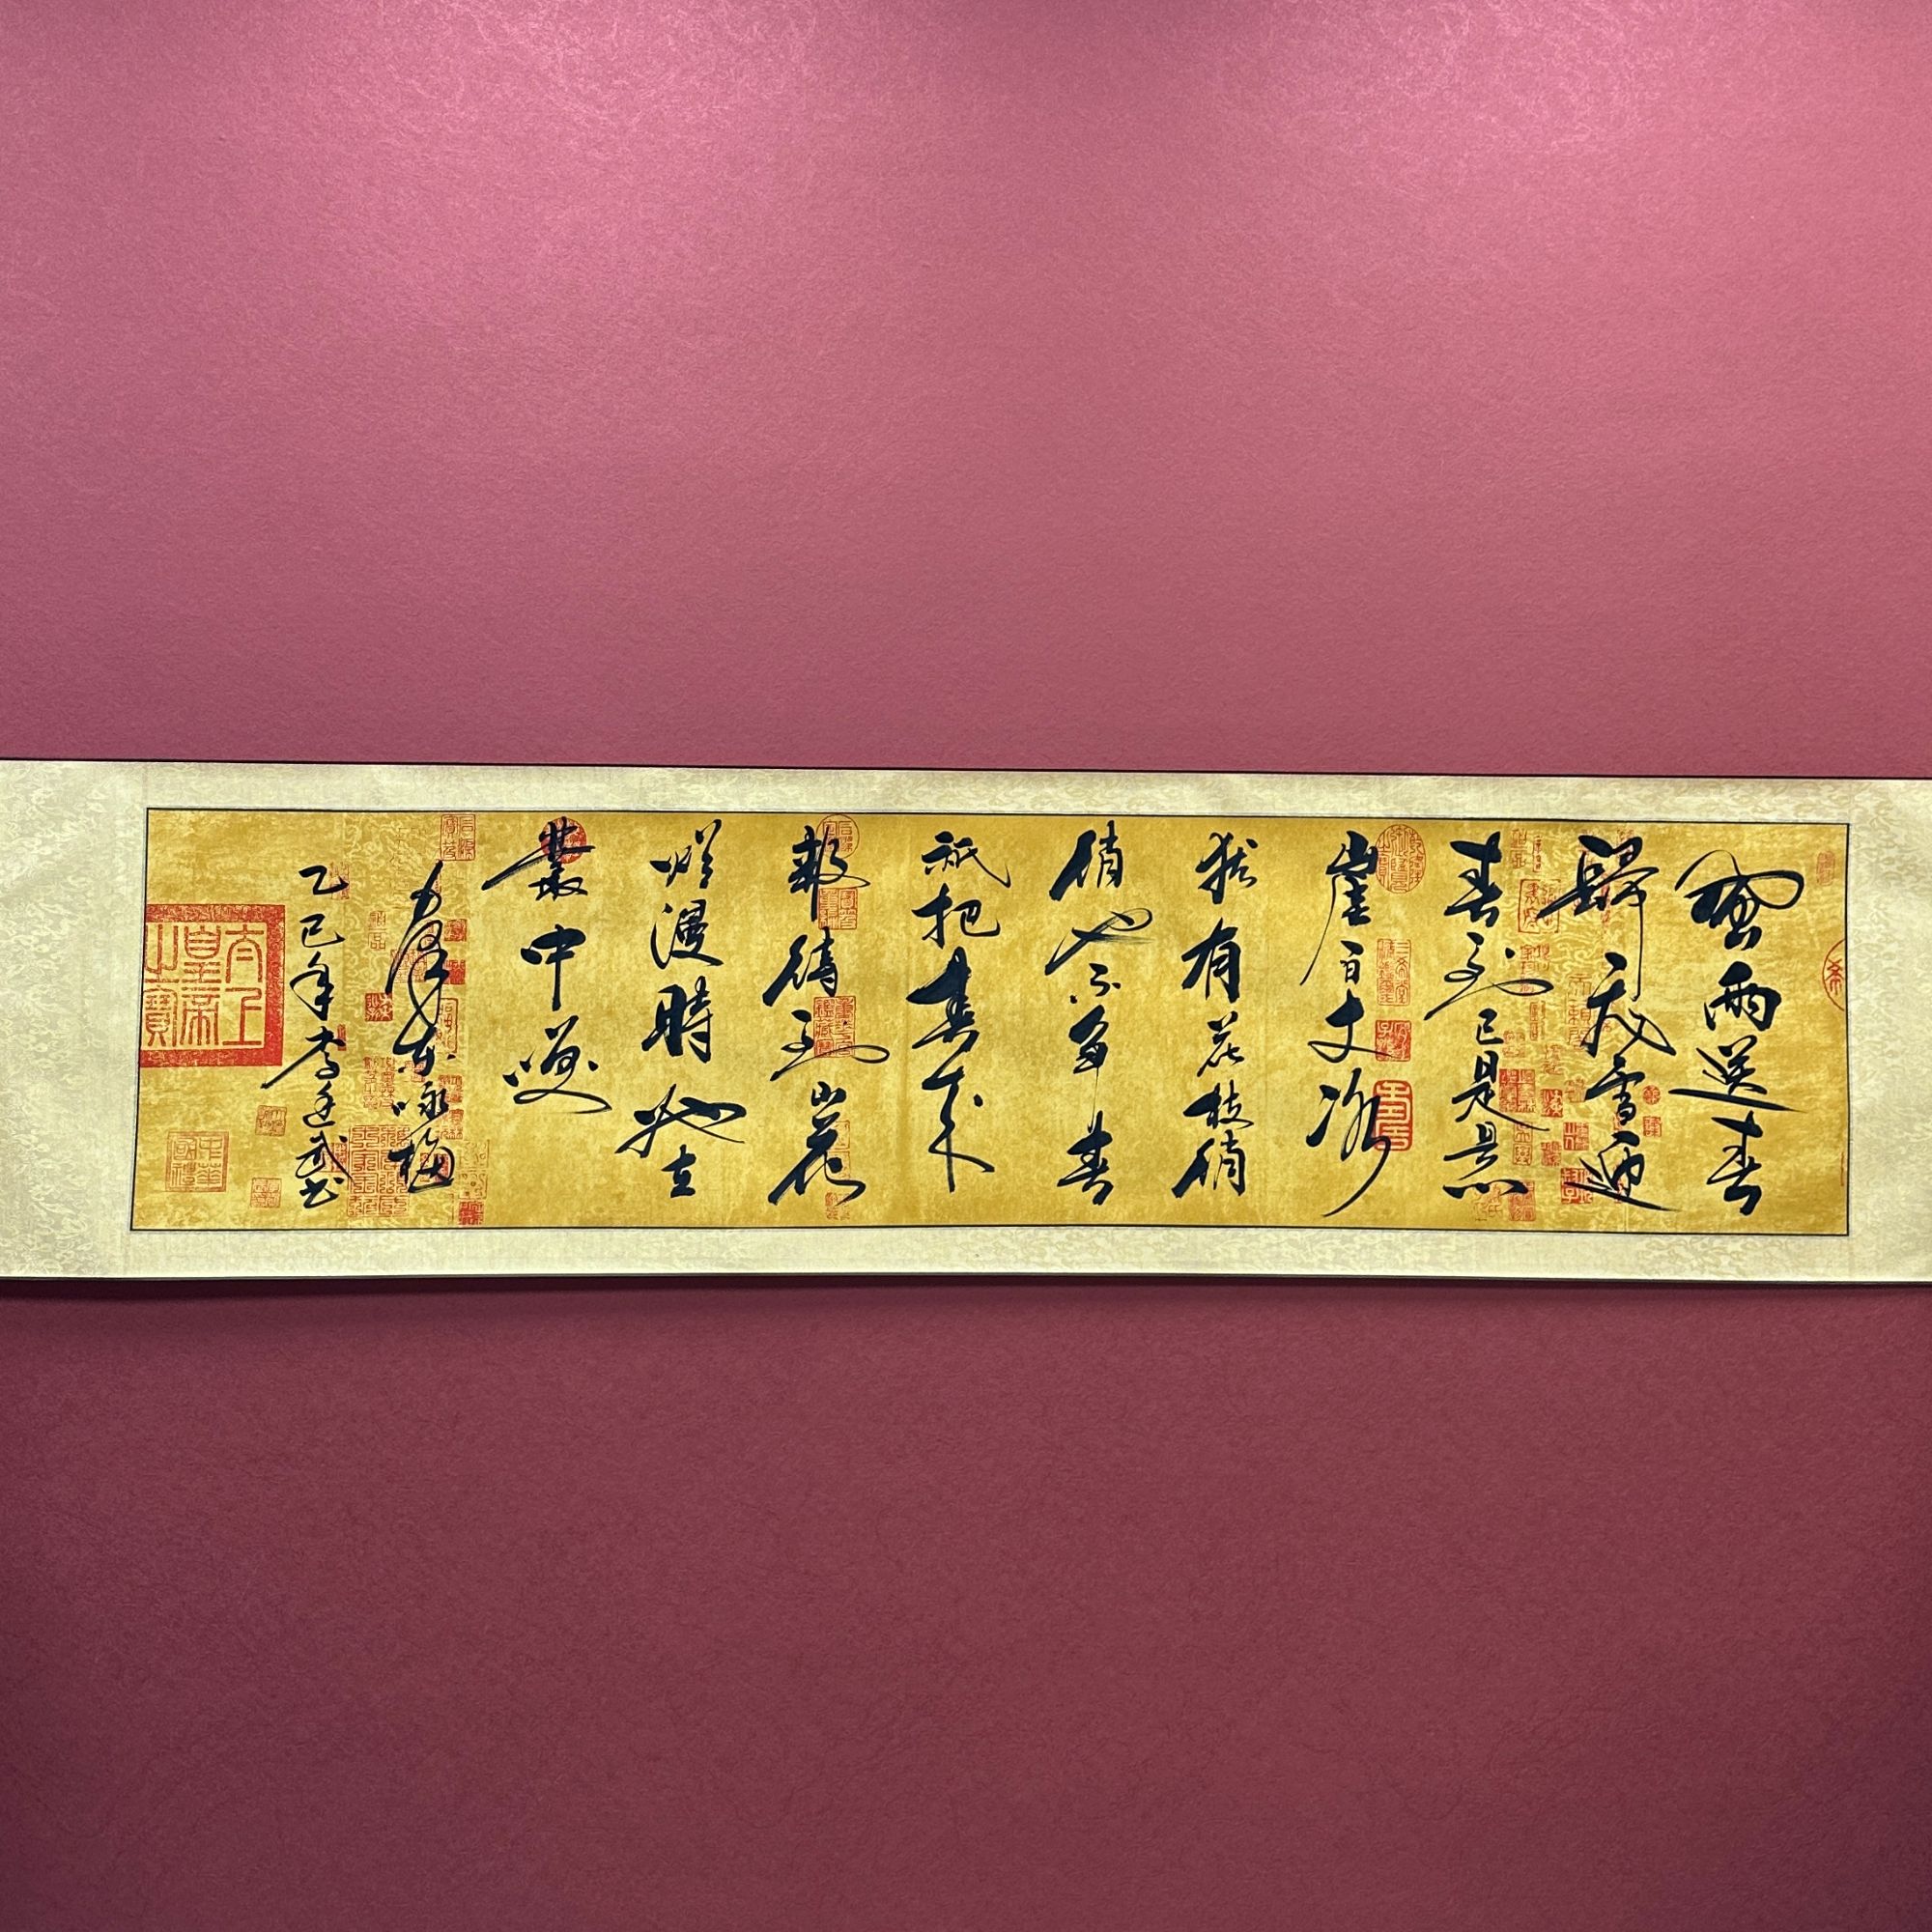 風雨送春
歸飛雪迎
春到已是懸
崖百丈冰
猶有花枝俏
俏也不爭春
祇把春來
報待到山花
爛漫時她在
叢中笑
毛澤東詠梅
乙巳年李廷武書
太上
皇帝
之寶